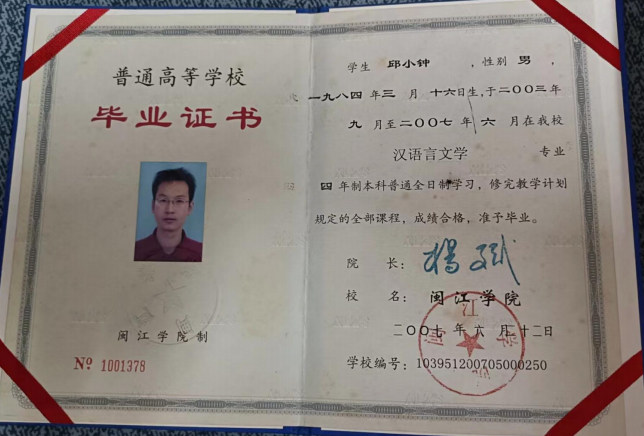 普通高等学校
毕业证书
闽江学院制
№ 1001378
学生 邱小钟 ，性别 男 ，
一九八四 年三 月 十六日生，于二〇〇三年
九 月至二〇〇七 年 六 月在我校
汉语言文学 专业
四 年制本科普通全日制学习，修完教学计划
规定的全部课程，成绩合格，准予毕业。
院 长：
校 名： 闽江学院
二〇〇七 年 六 月 十二日
学校编号：103951200705000250